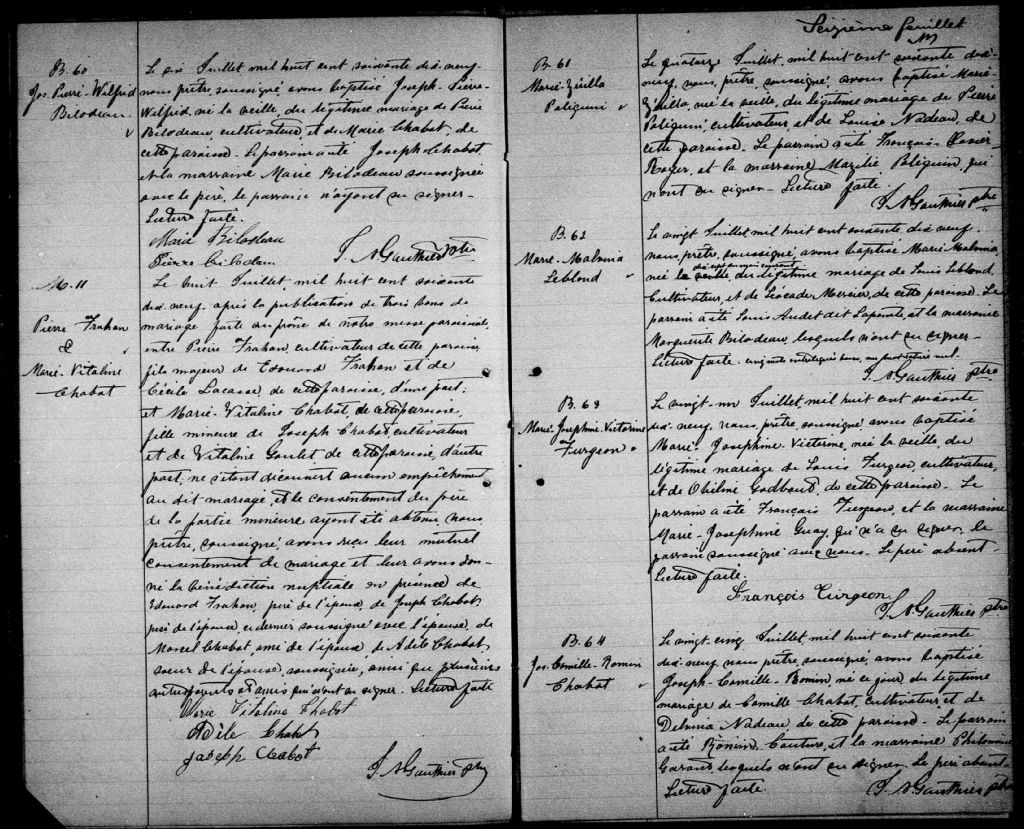 B. 60
Jos. Pierre-Wilfrid
Bilodeau
Le six Juillet, mil huit cent soixante dix-neuf
nous prêtre, soussigné, avons baptisé Joseph-Pierre
Wilfrid, né la veille, du légitime mariage de Pierre
Bilodeau, cultivateur, et de Marie Chabot, de
cette paroisse. Le parrain a été Joseph Chabot
et la marraine Marie Bilodeau soussignée
avec le père, le parrain n'ayant su signer.
Lecture faite.
Marie Bilodeau
Pierre Bilodeau J. A. Gauthier ptre
M. 11
Pierre Trahan
&
Marie-Vitaline
Chabot
Le huit Juillet, mil huit cent soixante
dix-neuf, après la publication de trois bans de
mariage faite au prône de notre messe paroissiale,
entre Pierre Trahan, cultivateur de cette paroisse,
fils majeur de Edouard Trahan et de
Cécile Lacasse, de cette paroisse, d'une part;
et Marie-Vitaline Chabot, de cette paroisse,
fille mineure de Joseph Chabot, cultivateur
et de Vitaline Goulet de cette paroisse, d'autre
part; ne s'étant découvert aucun empêchement
au dit mariage, et le consentement du père
de la partie mineure ayant été obtenu, nous
prêtre, soussigné, avons reçu leur mutuel
consentement de mariage et leur avons don-
né la bénédiction nuptiale en présence de
Edouard Trahan, père de l'époux, de Joseph Chabot,
père de l'épouse, ce dernier soussigné avec l'épouse, de
Marcel Chabot, ami de l'époux, de Adèle Chabot,
sœur de l'épouse, soussignée, ainsi que plusieurs
autres parents et amis qui n'ont su signer. Lecture faite
Marie Vitaline Chabot
Adèle Chabot
Joseph Chabot
J. A. Gauthier ptre
Seizième feuillet
B. 61
Marie-Zoïlla
Poliquin
Le quatorze Juillet, mil huit cent soixante dix-
neuf, nous, prêtre, soussigné, avons baptisé Marie-
Zoïlla, née la veille, du légitime mariage de Pierre
Poliquin, cultivateur, et de Louise Nadeau, de
cette paroisse. Le parrain a été François-Xavier
Roger, et la marraine Mazilie Poliquin, qui
n'ont su signer. Lecture faite.
J. A. Gauthier ptre
B. 62
Marie-Malvinia
Leblond
Le vingt Juillet, mil huit cent soixante dix-neuf,
nous, prêtre, soussigné, avons baptisé Marie Malvinia,
née la veille, du légitime mariage de Louis Leblond,
Cultivateur, et de Léocadie Mercier, de cette paroisse. Le
parrain a été Louis Audet dit Lapointe, et la marraine
Marguerite Bilodeau, lesquels n'ont su signer.
Lecture faite.
J. A. Gauthier ptre
B. 63
Marie-Josephine-Victorine
Turgeon
Le vingt-un Juillet, mil huit cent soixante
dix-neuf, nous, prêtre, soussigné, avons baptisé
Marie-Josephine Victorine, née la veille du
légitime mariage de Louis Turgeon, cultivateur,
et de Obiline Godbout, de cette paroisse. Le
parrain a été François Turgeon, et la marraine
Marie-Josephine Guay, qui n'a su signer, le
parrain soussigné avec nous. Le père absent.
Lecture faite.
François Turgeon
J. A. Gauthier ptre
B. 64
Jos. Camille-Romin
Chabot
Le vingt-cinq Juillet, mil huit cent soixante
dix-neuf, nous prêtre, soussigné, avons baptisé
Joseph-Camille-Romin, né ce jour, du légitime
mariage de Camille Chabot, cultivateur, et de
Delvinia Nadeau de cette paroisse. Le parrain
a été Romin Couture, et la marraine Philomène
Garand, lesquels n'ont su signer. Le père absent.
Lecture faite. J. A. Gauthier ptre